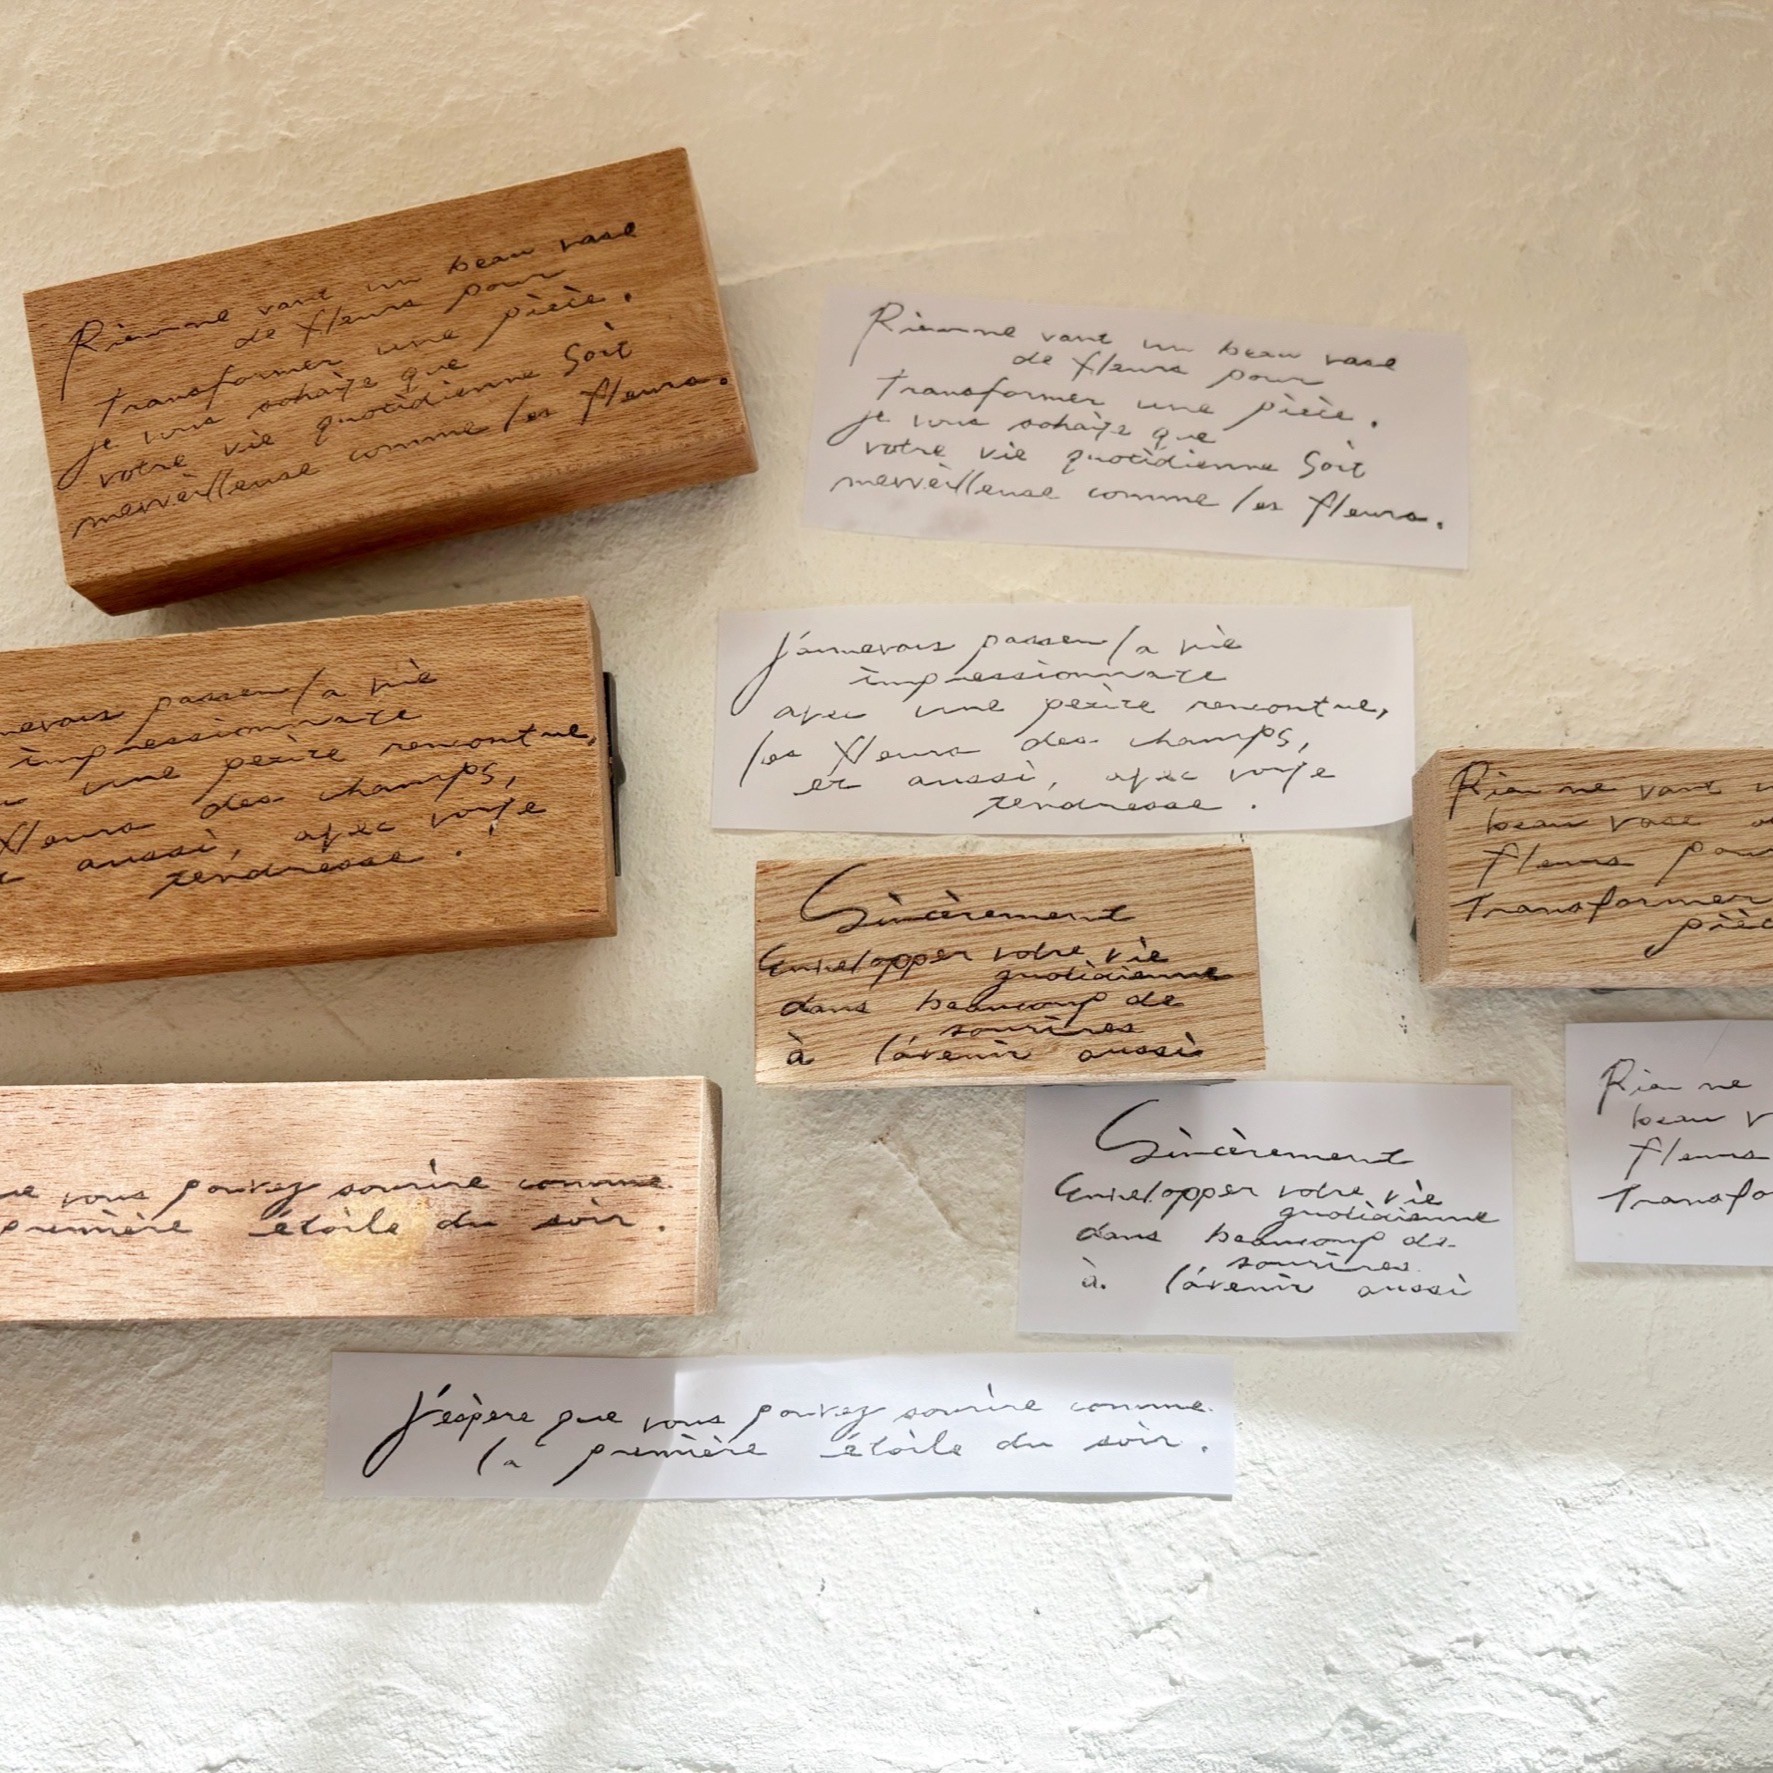 Rien ne vaut un beau vase
de fleurs pour
transformer une pièce.
je vous sohaite que
votre vie quotidienne Soit
merveilleuse comme les fleurs.
Rien ne vaut un beau vase
de fleurs pour
transformer une pièce.
je vous sohaite que
votre vie quotidienne Soit
merveilleuse comme les fleurs.
passer la vie
impressionnate
une petite rencontre,
fleurs des champs,
aussi, avec votre
tendresse.
J'aimerais passer la vie
impressionnate
avec une petite rencontre,
les fleurs des champs,
et aussi, avec votre
tendresse.
Rien ne vaut
beau vase
fleurs pour
Transformer
Sincèrement
Envelopper votre vie
quotidienne
dans beaucoup de
sourires
à l'avenir aussi
Sincèrement
Envelopper votre vie
quotidienne
dans beaucoup de
sourires
à l'avenir aussi
Rien ne
beau
fleurs
vous pouvez sourire comme
première étoile du soir.
J'espère que vous pouvez sourire comme
la première étoile du soir.